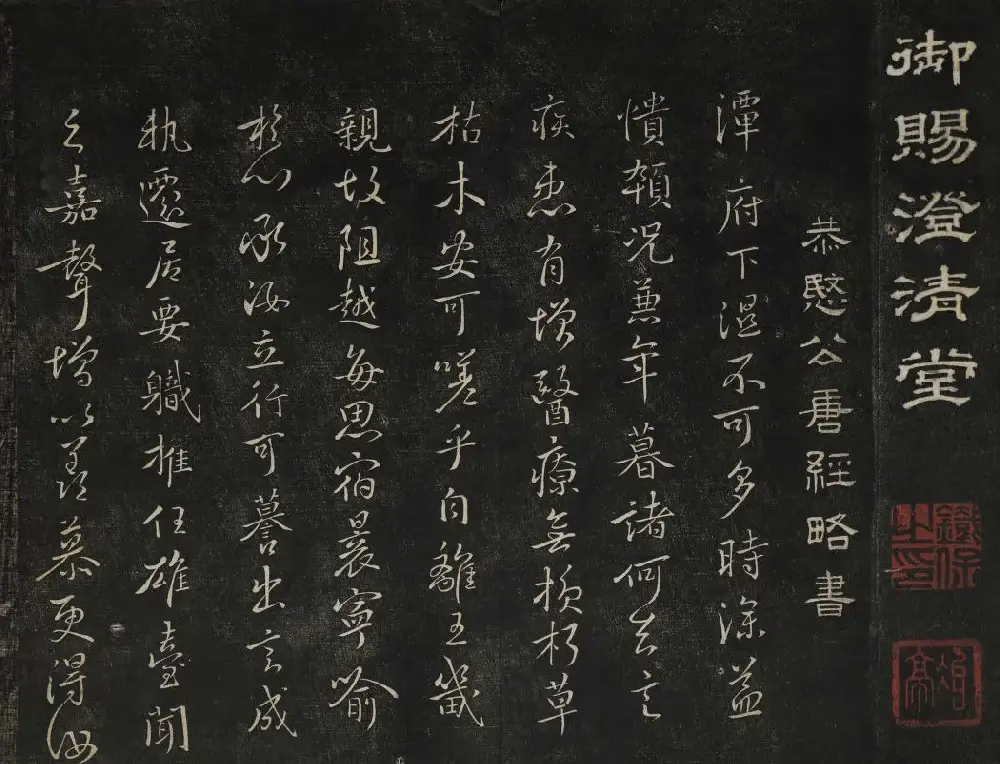 御賜澄清堂
恭愍公唐經略書
潭府下濕不可多時深益
憒頓況兼年暮諸何去言
疾患有增醫療無損朽草
枯木安可嗟乎自離王畿
親故阻越每思宿曩寧喻
於心承汝立行可譽出言成
執遷居要職推任雄臺聞
之嘉聲增以羨慕更得汝
鐵保之印